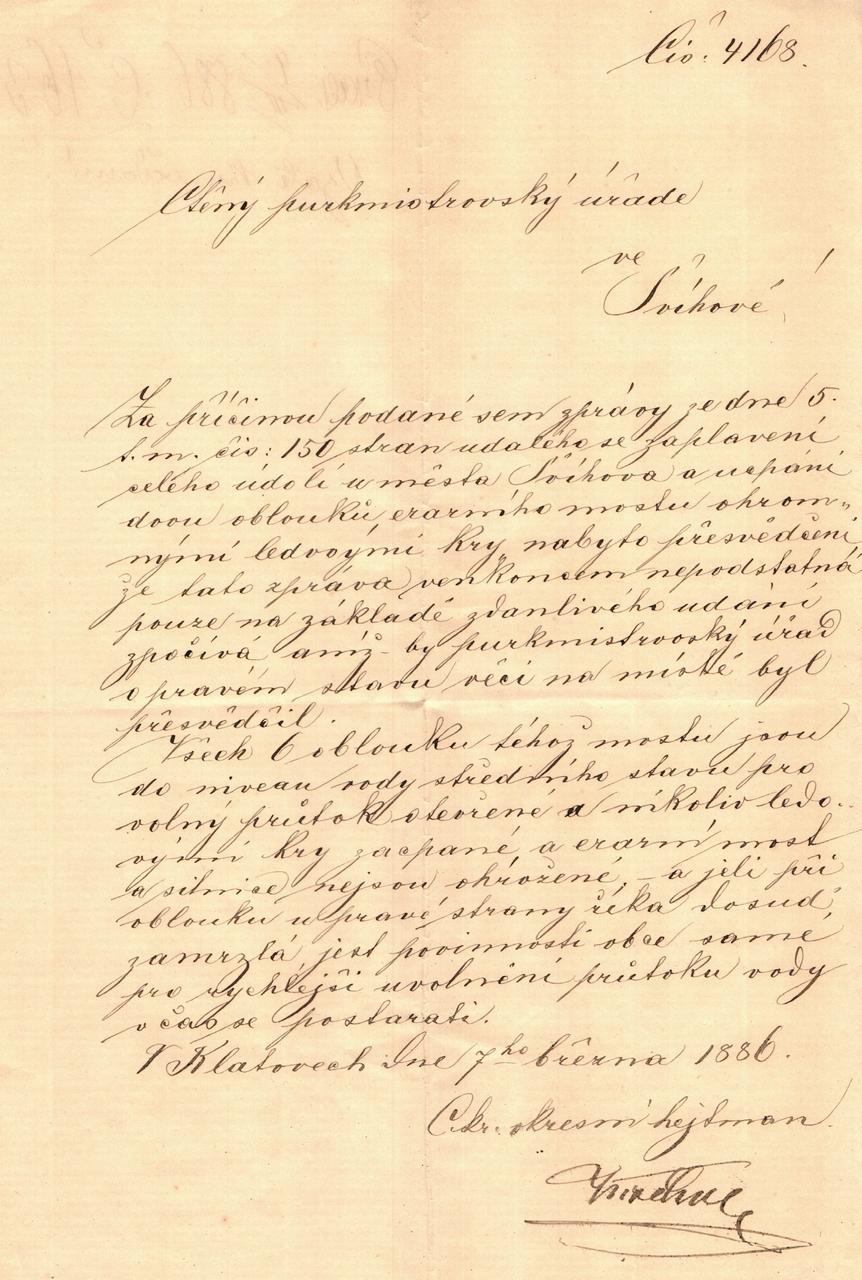 Čís: 4168.
Ctěný purkmistrovský úřade
ve
Švihově!
Za příčinou podané sem zprávy ze dne 5.
t. m. čís: 150 stran udalého se zaplavení
celého údolí u města Švihova a ucpání
dvou oblouků erarního mostu ohrom„
nými ledovými kry nabyto přesvědčení
že tato zpráva venkoncem nepodstatná
pouze na základě zdanlivého udání
zpočívá aniž by purkmistrovský úřad
o pravém stavu věci na místě byl
přesvědčil.
Všech 6 oblouku téhož mostu jsou
do niveau vody středního stavu pro
volný průtok otevřené a nikoliv ledo-
vými kry zacpané a erarní most
a silnice nejsou ohrožené, – a jeli při
oblouku u pravé strany řeka dosud
zamrzlá, jest povinností obce samé
pro rychlejší uvolnění průtoku vody
v čas se postarati.
V Klatovech dne 7ho března 1886.
C. kr. okresní hejtman.